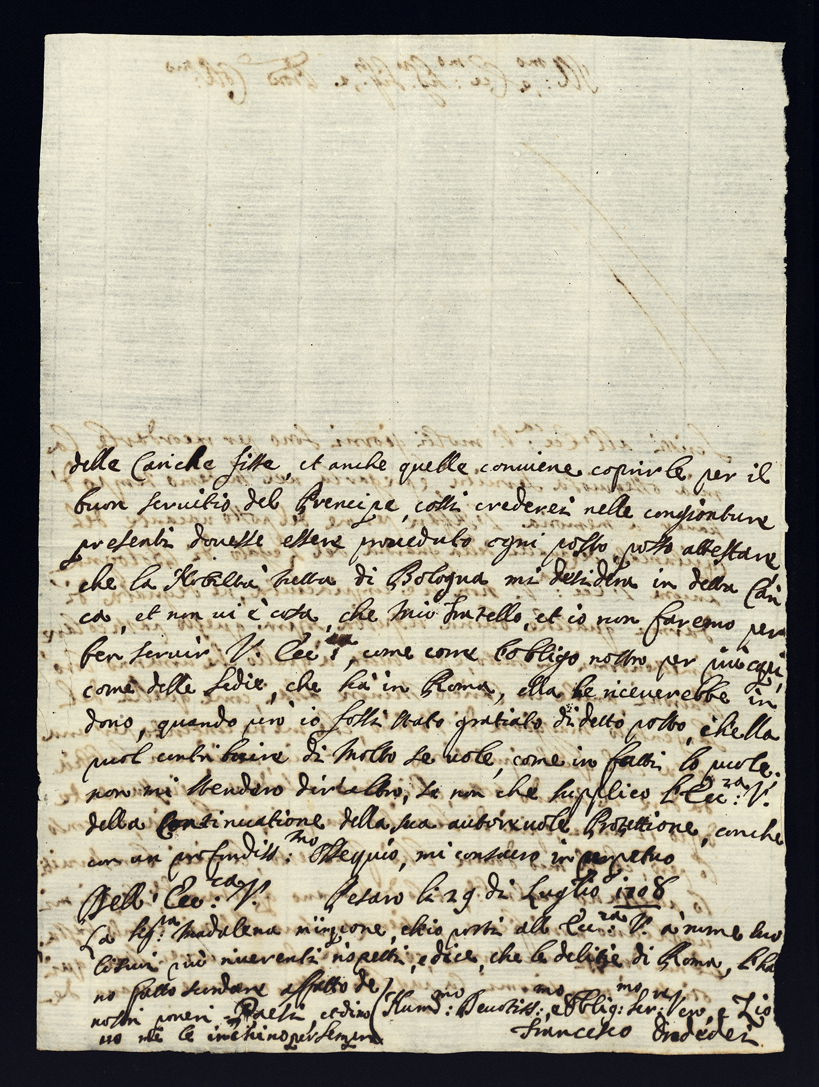 delle Cariche fisse, et anche quelle conviene coprirle per il
buon servitio del Prencipe, cossi crederei nelle congionture
presenti dovesse essere proveduto ogni posto, posso attestare
che la Nobiltà tutta di Bologna mi desidera in detta Cari
ca, et non vi è cosa, che mio fratello, et io non faremo per
ben servir V. Ecc:za, come corre l'obligo nostro per
come delle Sedie, che hà in Roma, ella le riceverebbe in
dono, quando però io fossi stato gratiato di detto posto, e ch'ella
puol contribuire di molto se vole, come in fatti lo puole.
non mi stendero dir altro, se non che supplico l'Ecc:za V.
della Continuatione della sua autorevole Protettione, con che
con un profondiss:mo Ossequio, mi consacro in perpetuo
Dell' Ecc:za V. Pesaro li 29 di Luglio 1708
La Sig:ra Madalena m'impone, ch'io porti all' Ecc:za V. à nome suo
li suoi più riverenti rispetti, e dice, che le delitie di Roma, l'ha
no fatto scordare affatto de
nostri poveri Paesi et
no me le inchino per sempre
Hum:mo Devotiss:mo, e Obblig:mo Ser:re Vero, e Zio
Francesco Ondedei